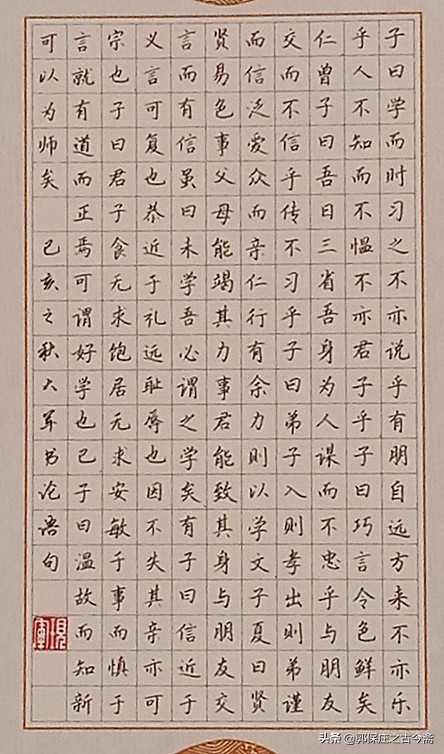 子曰学而时习之不亦说乎有朋自远方来不亦乐
乎人不知而不愠不亦君子乎子曰巧言令色鲜矣
仁曾子曰吾日三省吾身为人谋而不忠乎与朋友
交而不信乎传不习乎子曰弟子入则孝出则弟谨
而信泛爱众而亲仁行有余力则以学文子夏曰贤
贤易色事父母能竭其力事君能致其身与朋友交
言而有信虽曰未学吾必谓之学矣有子曰信近于
义言可复也恭近于礼远耻辱也因不失其亲亦可
宗也子曰君子食无求饱居无求安敏于事而慎于
言就有道而正焉可谓好学也已子曰温故而知新
可以为师矣 己亥之秋大军书论语句
头条 @郭保庄之古今斋